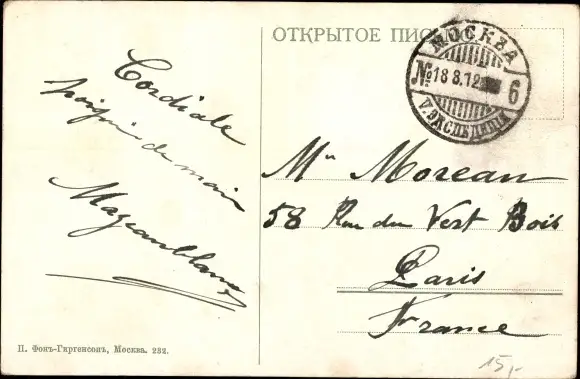 Cordiale
poignée de main
ОТКРЫТОЕ ПИС
МОСКВА
№ 18 8.12 6
V. ЭКСПЕДИЦІЯ
Mr Moreau
58 Rue du Vert Bois
Paris
France
П. Фонъ-Гиргенсонъ, Москва. 232.
15,-